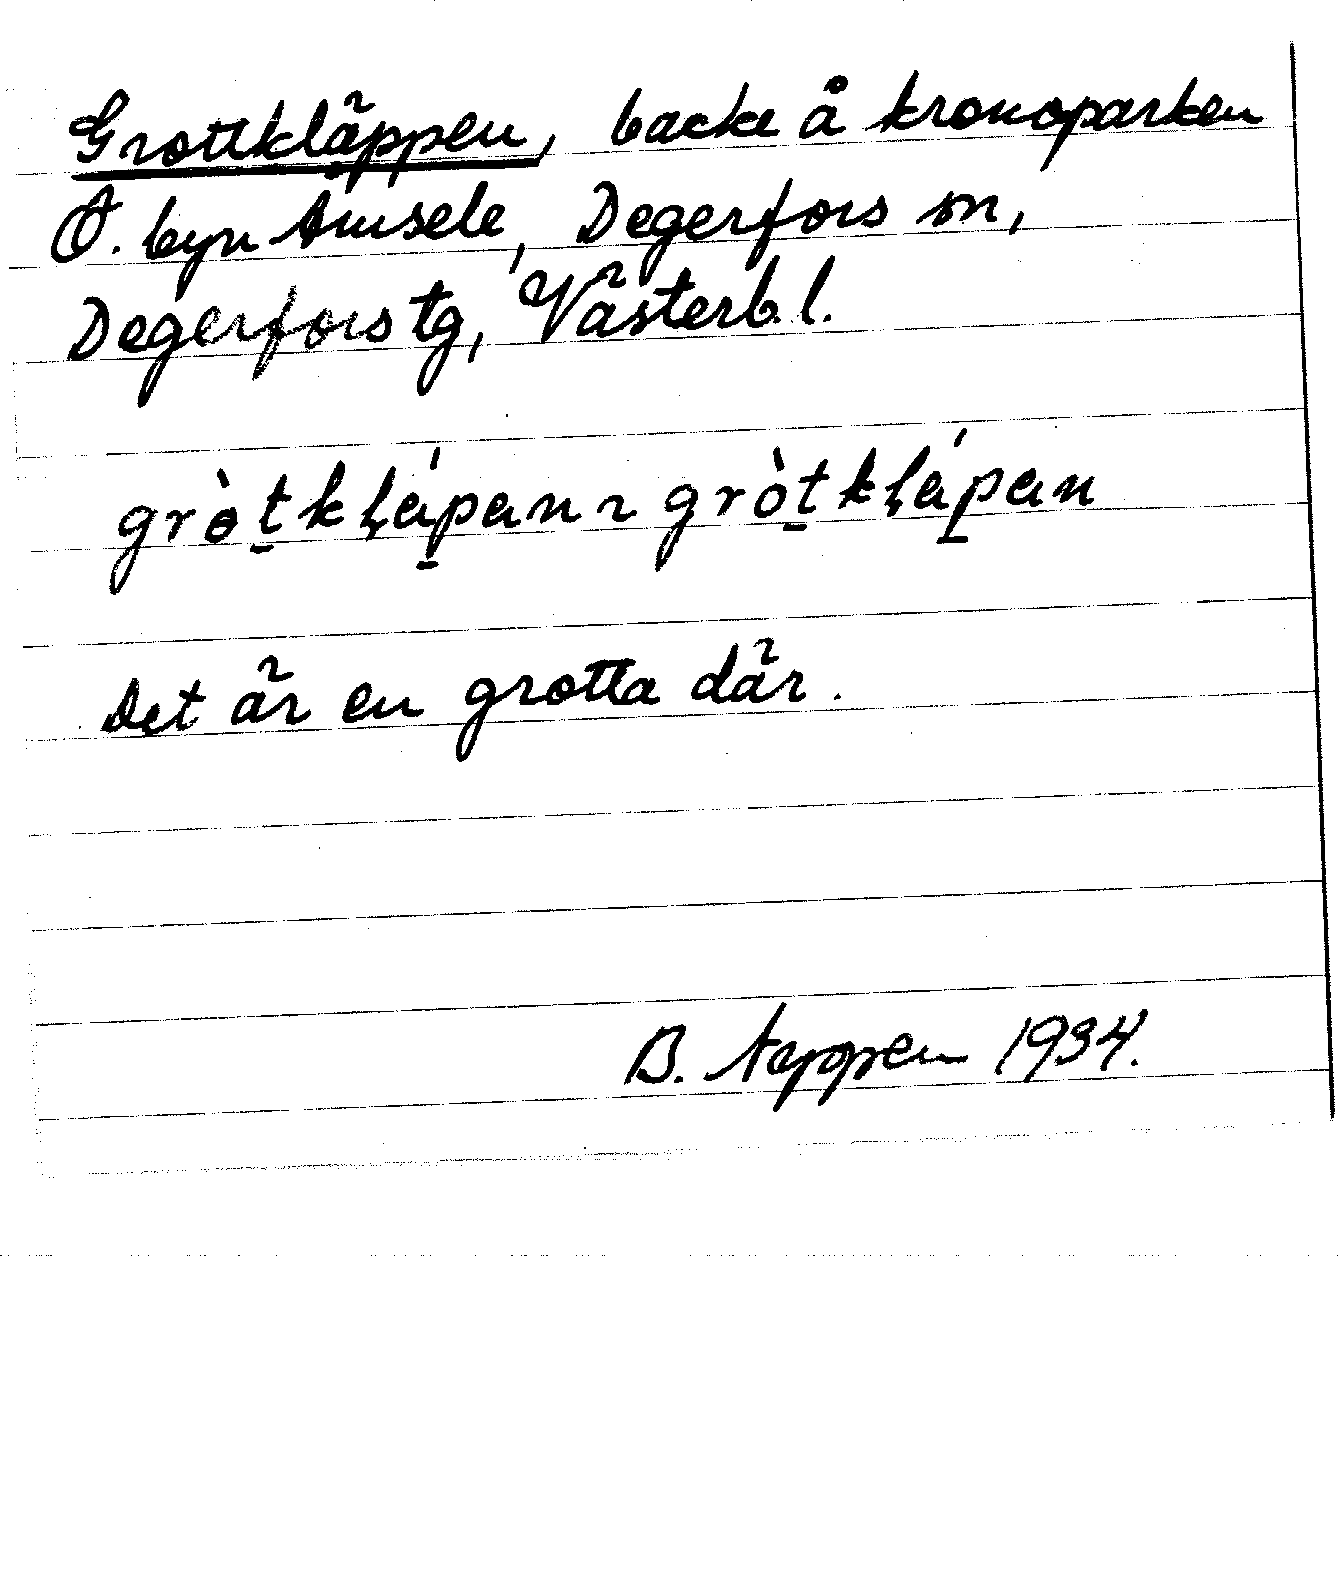 Grottkläppen, backe å kronoparken
Ö. byn Åmsele, Degerfors sn,
Degerfors tg, Västerb. l.
grò̱tkḷáp̱an ~ grò̱tkḷáp̱an
Det är en grotta där.
B. Seppen 1934.